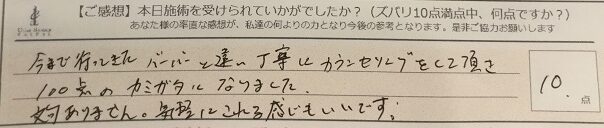 【ご感想】本日施術を受けられていかがでしたか？（ズバリ10点満点中、何点ですか？）
あなた様の率直な感想が、私達の何よりの力となり今後の参考となります。是非ご協力お願いします
今まで行ってきた バーバーと違い 丁寧に カウンセリングをして頂き
100点の カミガタに なりました。
ありません。気軽にこれる感じもいいです。
10.
点